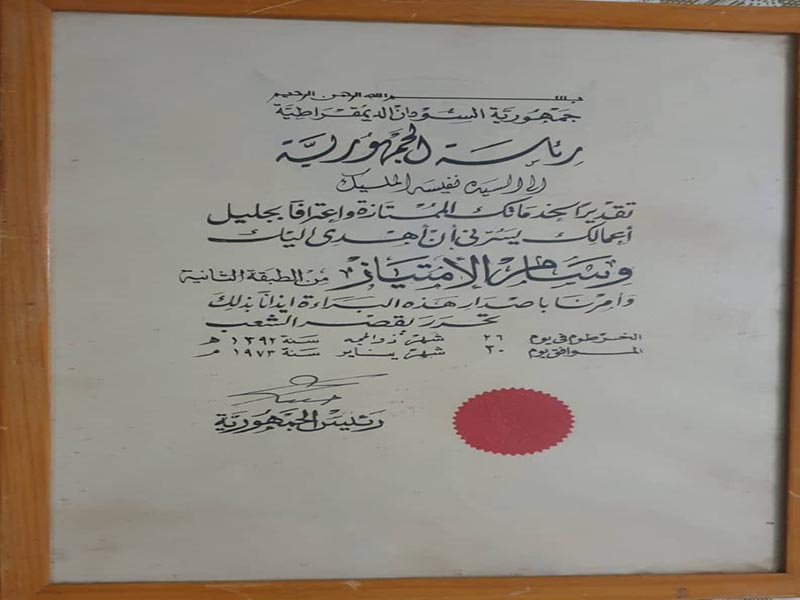 بسم الله الرحمن الرحيم
جمهورية السودان الديمقراطية
رئاسة الجمهورية
إلى السيدة نفيسه المليك
تقديرا لخدماتك الممتازة واعترافا بجليل
أعمالك يسرني أن أهدى اليك
وسام الامتياز من الطبقة الثانية
وأمرنا باصدار هذه البراءة ايذانا بذلك
تحرر بقصر الشعب
الخرطوم في يوم ٢٦ شهر ذو الحجه سنة ١٣٩٢ هـ
الموافق يوم ٣٠ شهر يناير سنة ١٩٧٣ م
رئيس الجمهورية